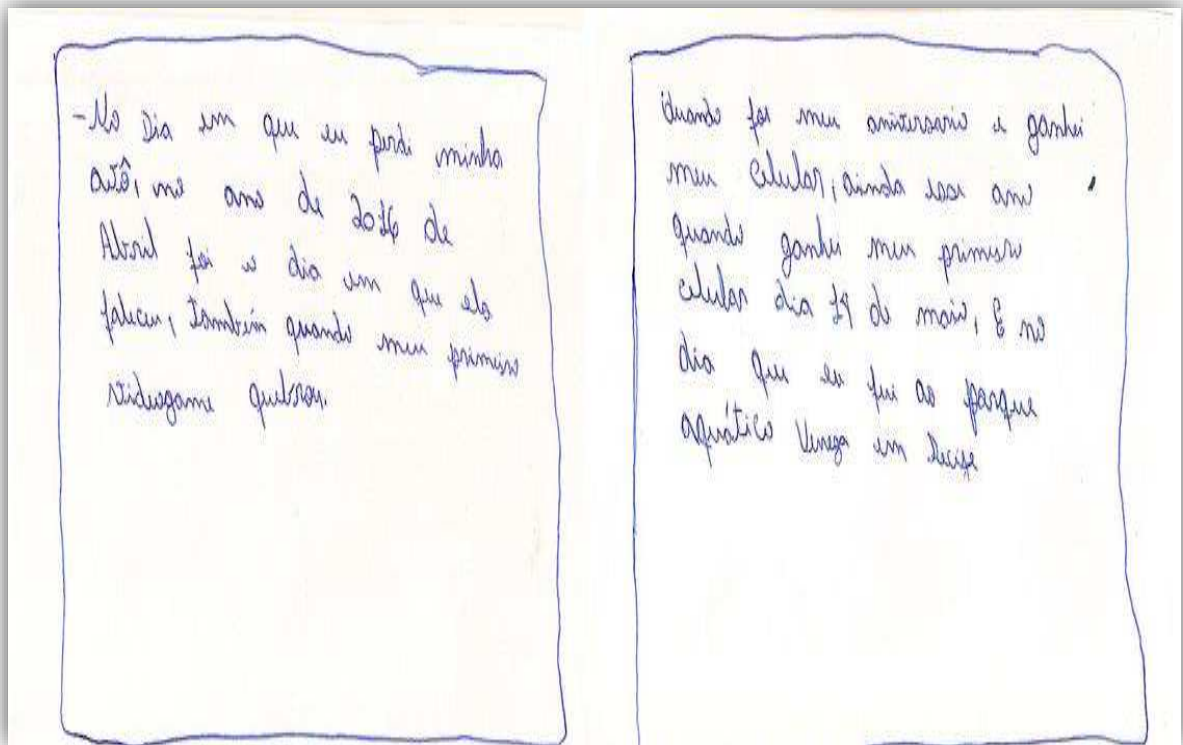 -No Dia em que eu perdi minha
avó, no ano de 2016 de
Abril foi o dia em que ela
faleceu, tambem quando meu primeiro
videogame quebrou.
quando foi meu aniversario e ganhei
meu celular, ainda esse ano
quando ganhei meu primeiro
celular dia 17 de maio, E no
dia que eu fui ao parque
aquático Veneza em Recife